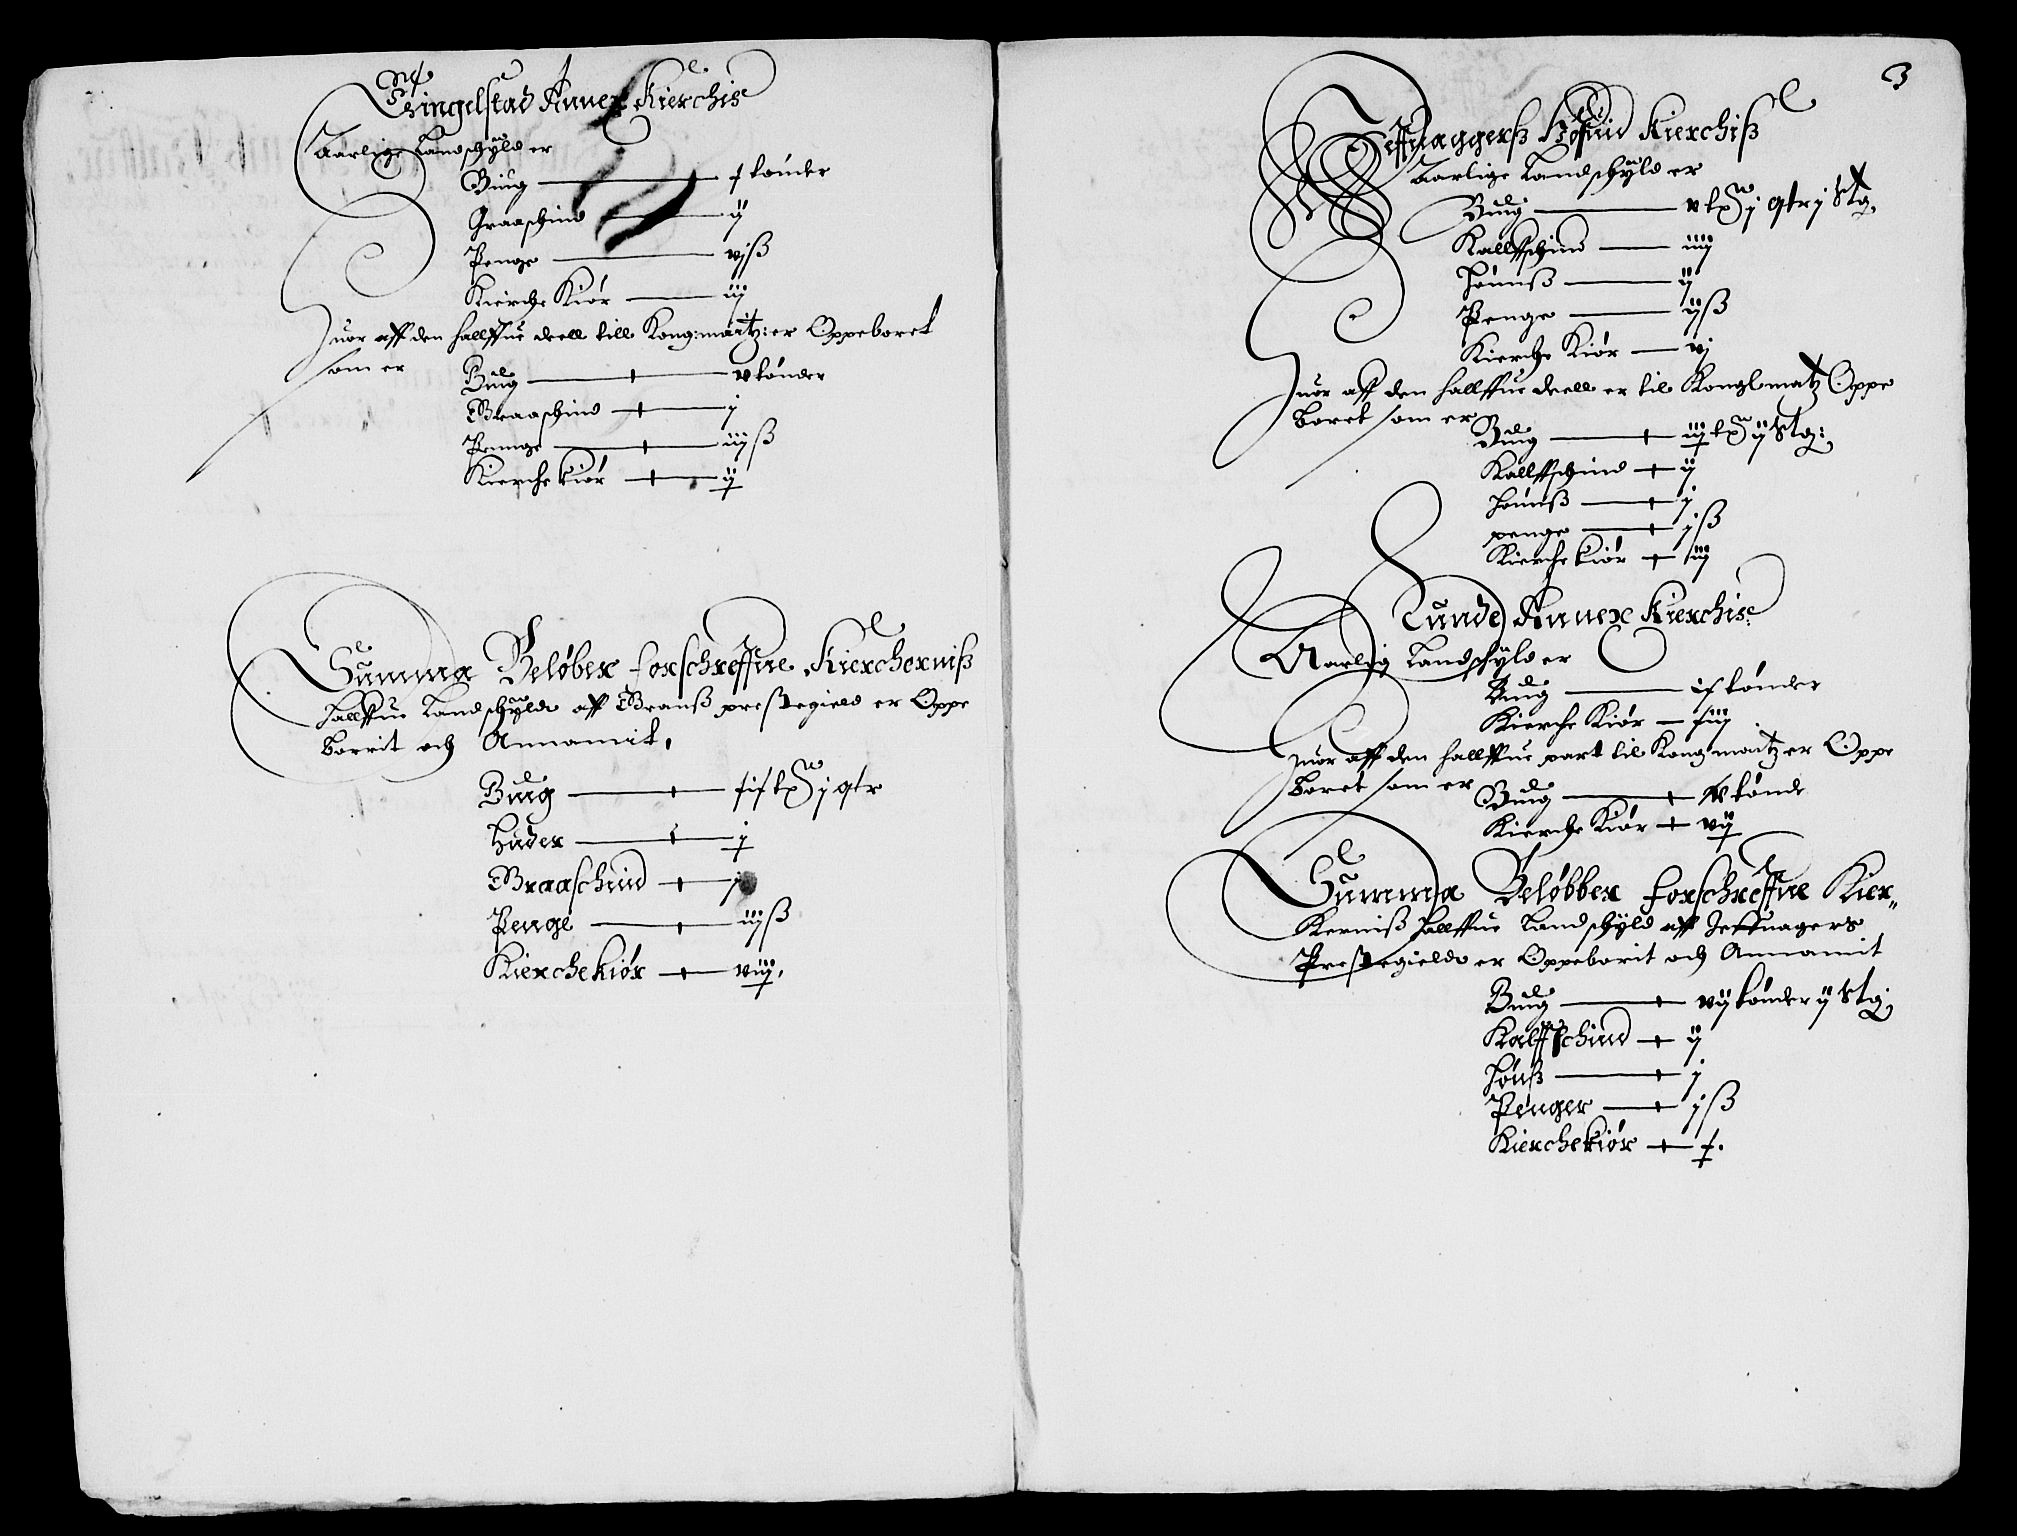 Tingelstad Annex Kierchis
Aarlige Landschyld er
Biug — x tönder
Graaschind — ij
Penge — vj ß
Kierche Kiör — iij
Huor aff den halffue deell till Kong: maitz: er Oppeboret
som er
Biug — v tönder
Graaschind — j
Penge — iij ß
Kierche kiör — ij
Summa Belöber forschreffne Kircherniß
halffue Landschyld aff Granß prestegield er Oppe
borrit och Annamit,
Biug — j qtr
Huder — j
Graaschind — j
Penge — iij ß
Kierchekiör — viij.
3
Jeffnaggerß Hoffuid Kierchiß
Aarlige Landschyld er
Biug — j qtr j Stg.
Kallffschind — iiij
Hönnß — ij
Penge — iij ß
Kierche Kiör — vj
Huor aff den halffue deell er til Kongl matz Oppe
boret som er
Biug — ij Stg:
Kallffschind — ij
Hönnß — j
penge — j ß
Kierche kiör — iij
Lunde Annex Kierchis
Aarlig Landschyld er
Biug — ix tönder
Kierche Kiör — xiiij
Huor aff den halffue part til Kong maitz er Oppe
boret som er
Biug — tönde
Kierche Kiör — vij
Summa Belöbber forschreffne Kier„
Kerniß halffue Landschyld aff Jeffnagers
Prestegield er Oppeborit och Annamit
Biug — vij tönder ij Stg.
Kalffschind — ij
Hönß — j
Penger — j ß
Kierchekiör — x.